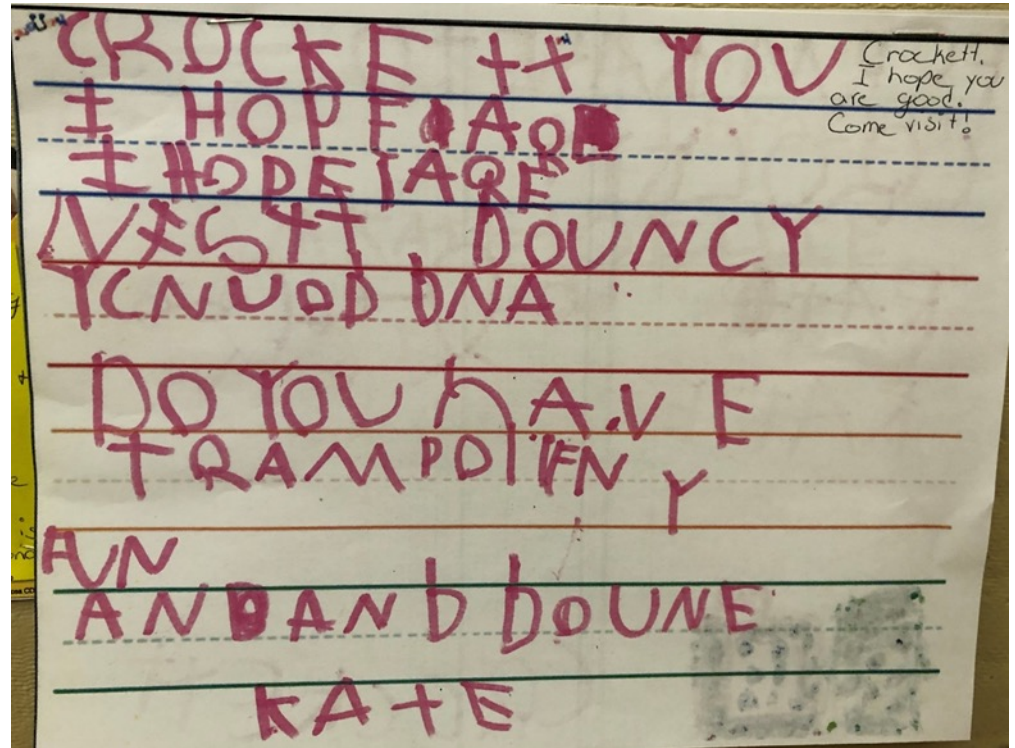 CROCKE tt YOU
Crockett,
I hope you
are good.
Come visit!
I HOPE AO
I HOPE I ARE
VISTT DOUNCY
YCNUOD DNA
DO YOU hAVE
TRAMPOLIEN Y
FUN
AND AND DOUNE
KATE